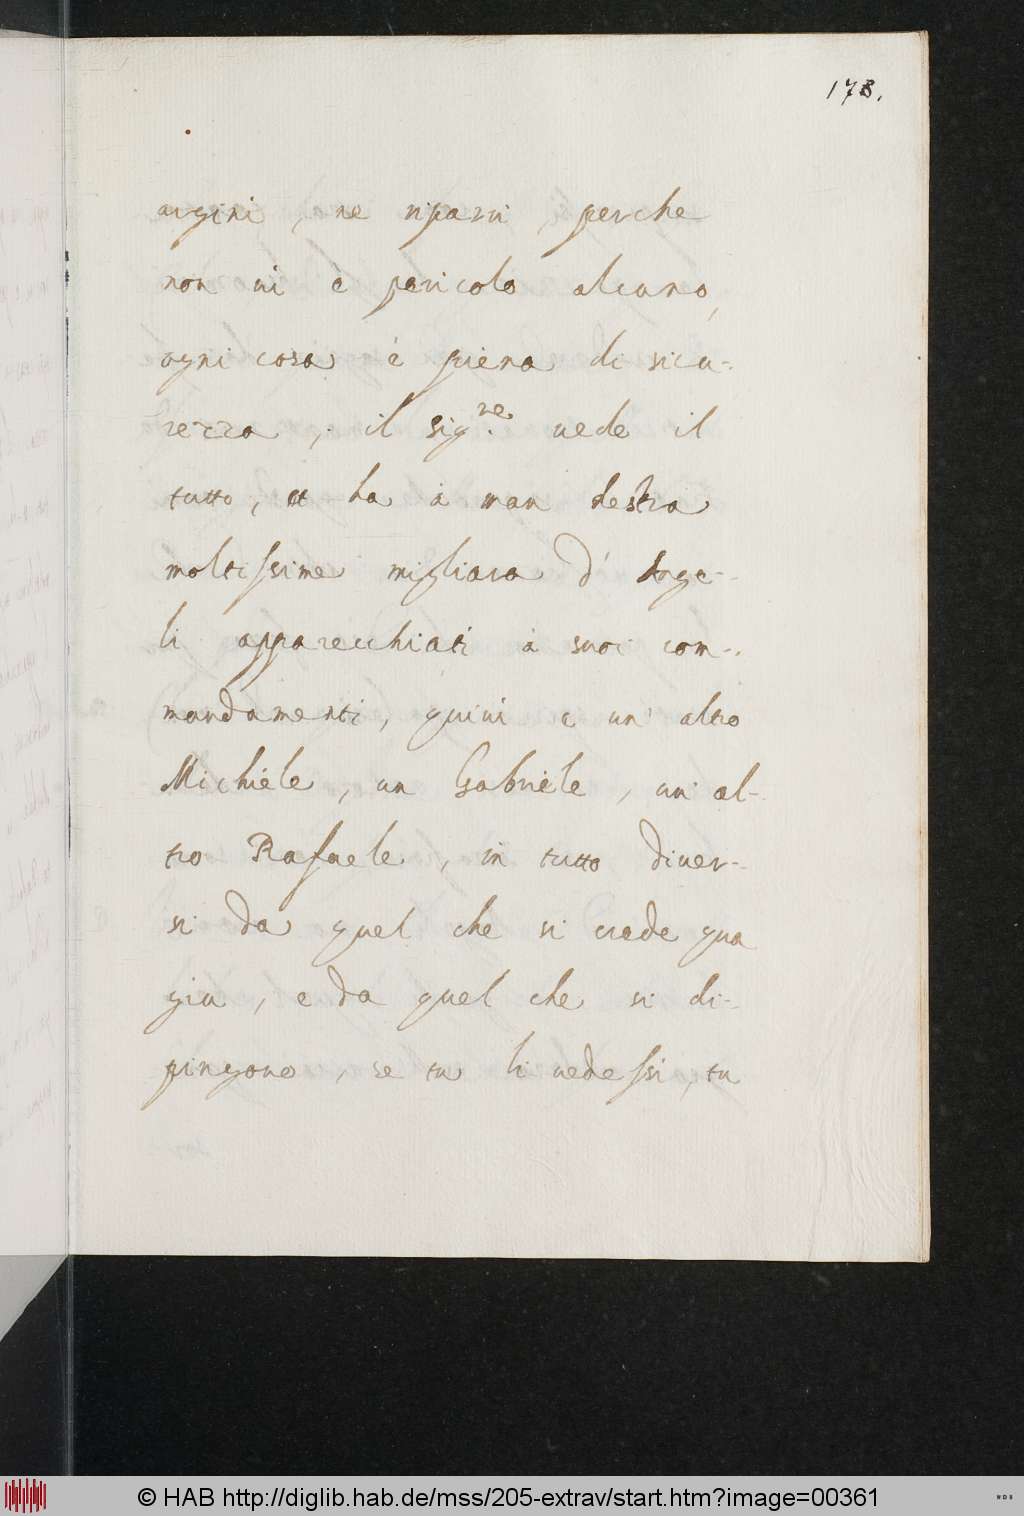 178.
argini, ne ripari, perche
non ui è pericolo alcuno,
ogni cosa è piena di sicu-
rezza, il sig.re uede il
tutto, et ha à man destra
moltissime migliara d' Ange-
li apparecchiati à suoi com-
mandamenti, quiui è un' altro
Michiele, un Gabriele, un' al-
tro Rafaele, in tutto diuer-
si da quel che si crede qua
giu, e da quel che si di-
pingono, se tu li uedessi, tu
© HAB http://diglib.hab.de/mss/205-extrav/start.htm?image=00361